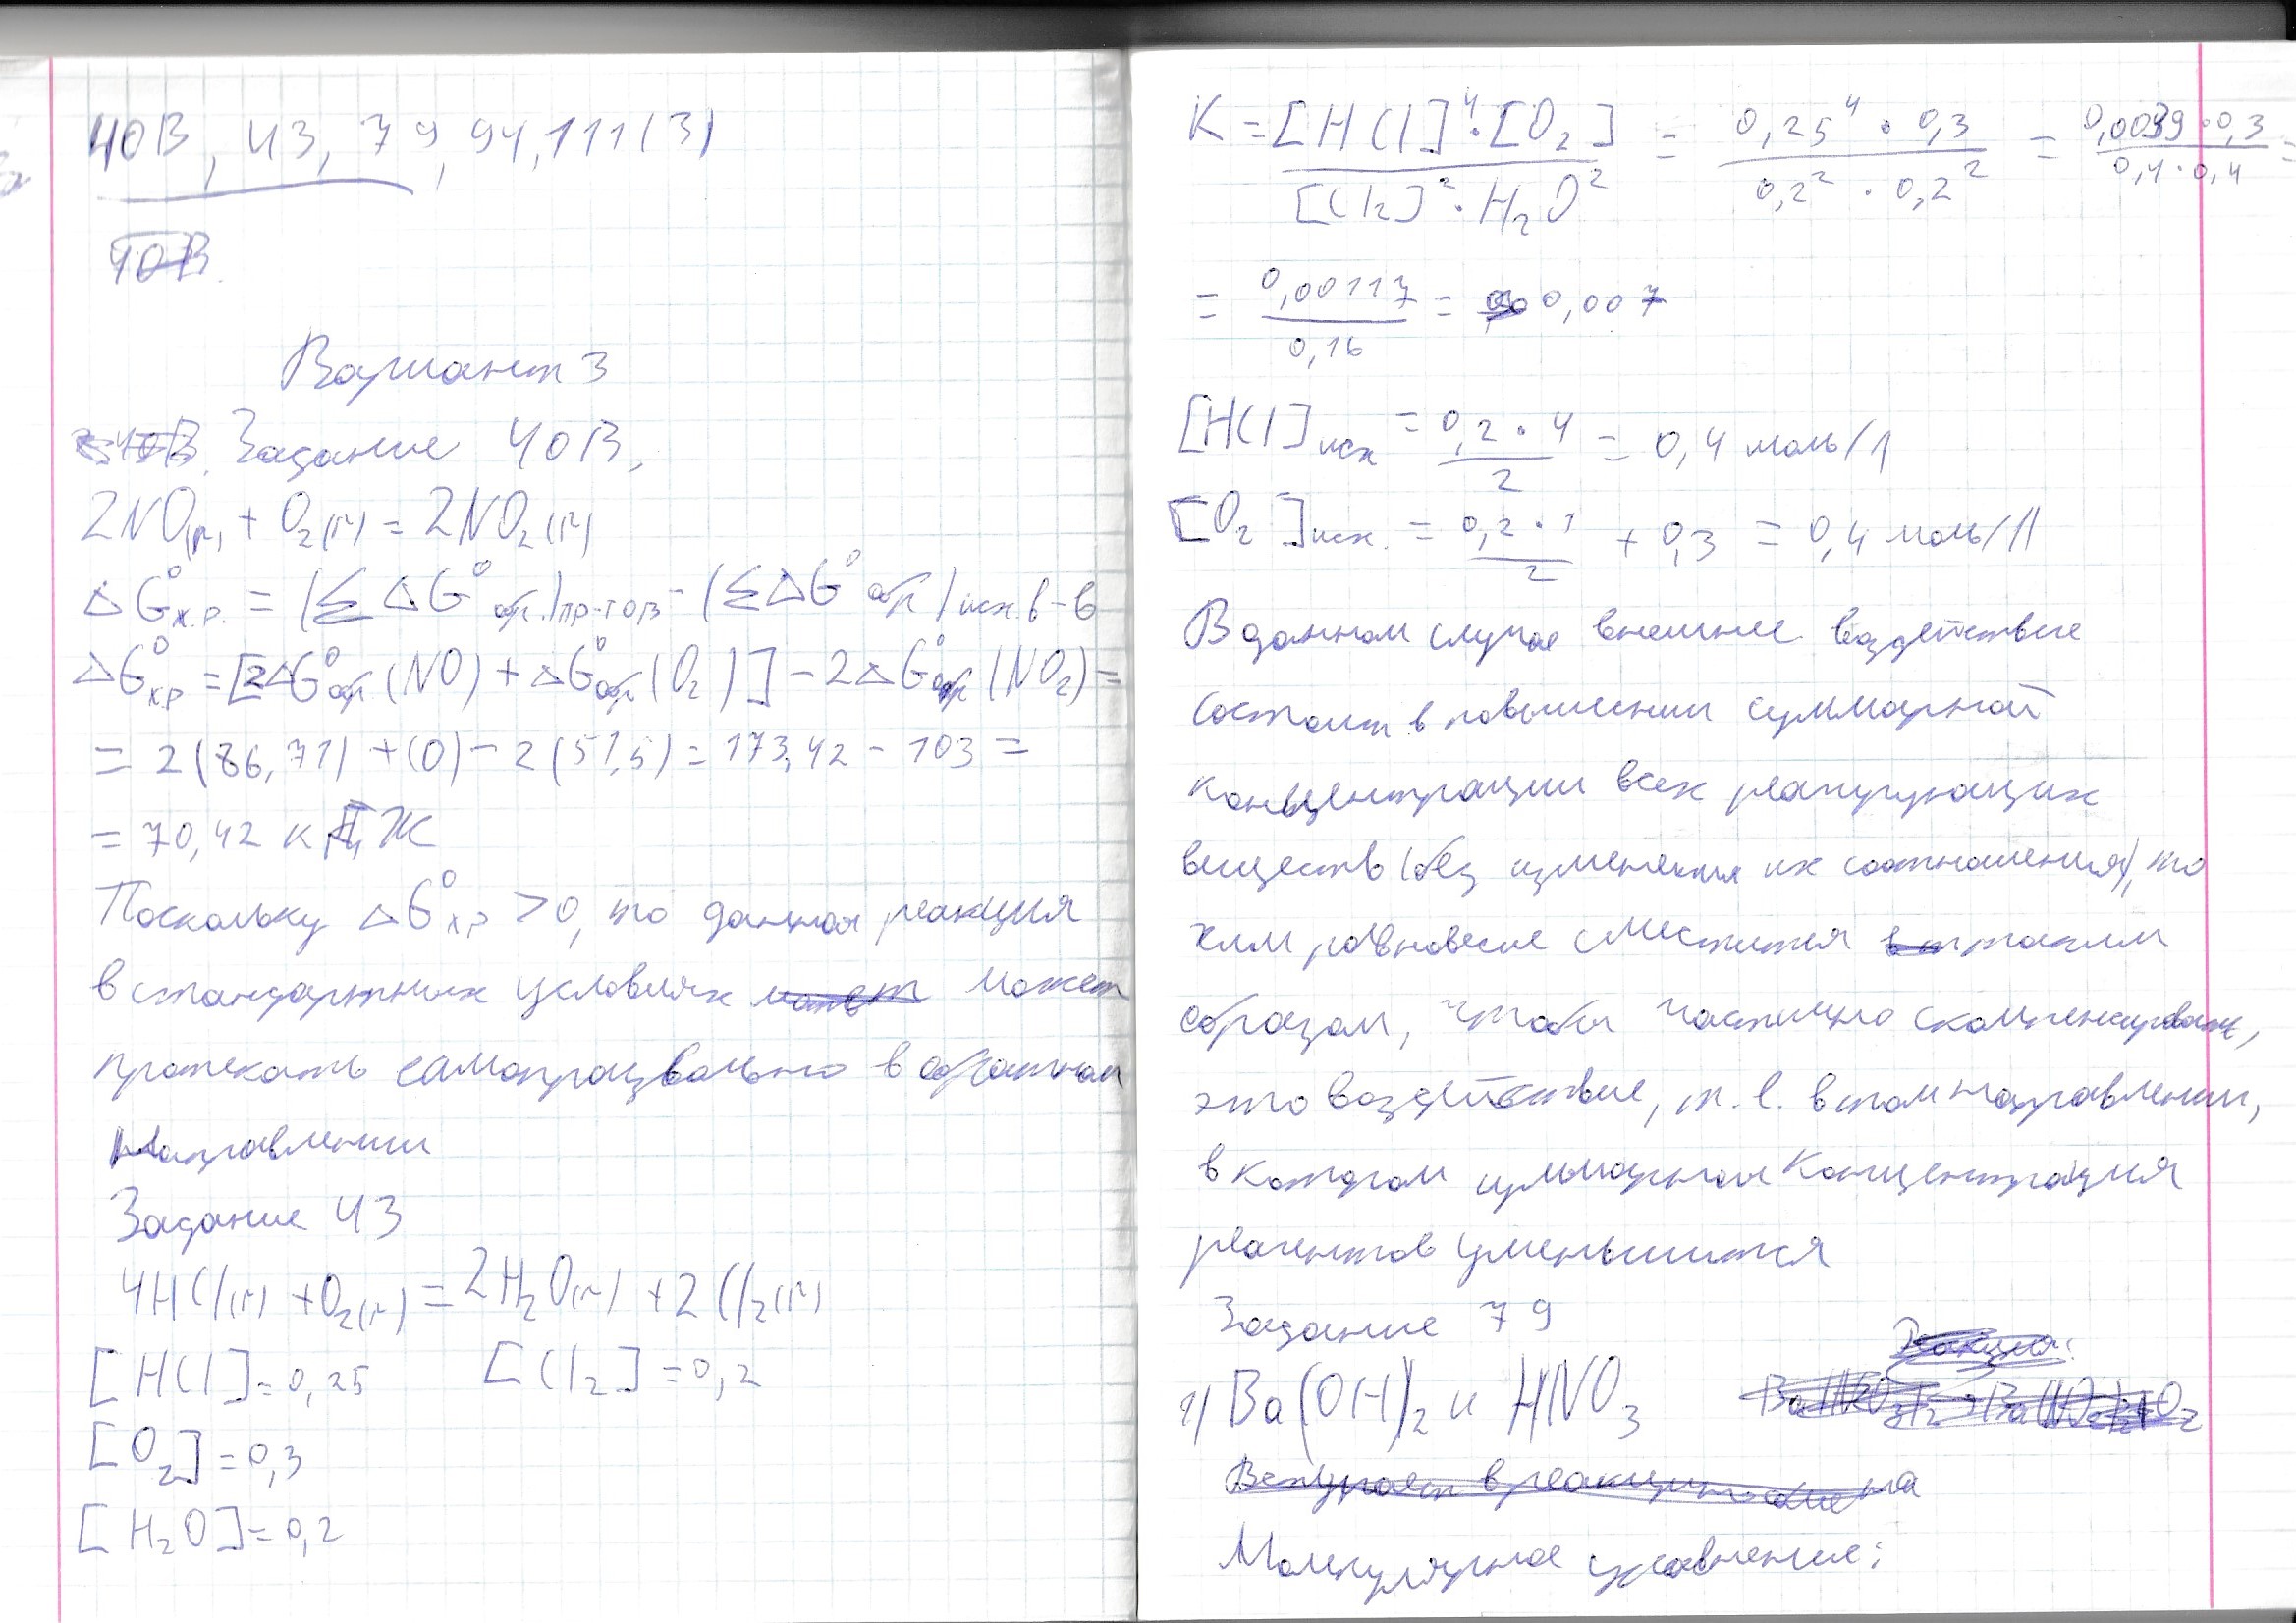 40В, 43, 79, 94, 111(3)
40В
Вариант 3
Задание 40В.
2NO(г) + O₂(г) = 2NO₂(г)
ΔG⁰х.р. = (Σ ΔG⁰обр.)пр-тов - (ΣΔG⁰обр)исх.в-в
ΔG⁰х.р = [2ΔG⁰обр(NO) + ΔG⁰обр(O₂)] - 2ΔG⁰обр(NO₂) =
= 2(86,71) + (0) - 2(51,5) = 173,42 - 103 =
= 70,42 кДЖ
Поскольку ΔG⁰х.р > 0, то данная реакция
в стандартных условиях может
протекать самопроизвольно в обратном
направлении
Задание 43
4HCl(г) + O₂(г) = 2H₂O(г) + 2Cl₂(г)
[HCl] = 0,25 [Cl₂] = 0,2
[O₂] = 0,3
[H₂O] = 0,2
K = [HCl]⁴·[O₂] / [Cl₂]²·H₂O² = 0,25⁴ · 0,3 / 0,2² · 0,2² = 0,0039·0,3 / 0,4·0,4 =
= 0,00117 / 0,16 = 0,007
[HCl]исх = 0,2·4 / 2 = 0,4 моль/л
[O₂]исх. = 0,2·1 / 2 + 0,3 = 0,4 моль/л
В данном случае внешнее воздействие
состоит в повышении суммарной
концентрации всех реагирующих
веществ (без изменения их соотношения), то
хим равновесие сместится таким
образом, чтобы частично скомпенсировать,
это воздействие, т.е. в том направлении,
в котором суммарная концентрация
реагентов уменьшится
Задание 79
1) Ba(OH)₂ и HNO₃
Молекулярное уравнение: